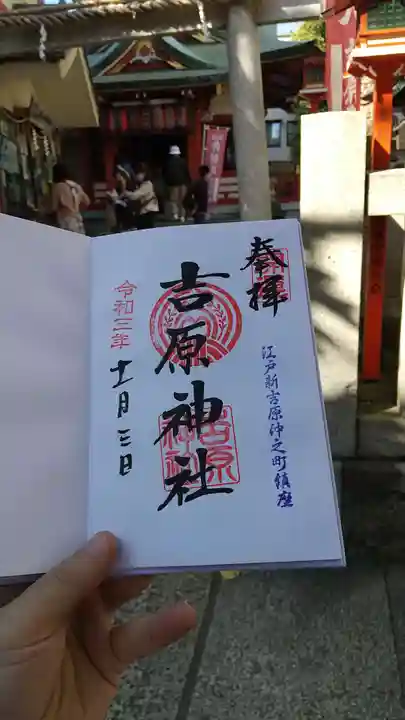 奉拝
江戸新吉原仲之町鎮座
吉原神社
吉原
神社
令和三年
十一月三日